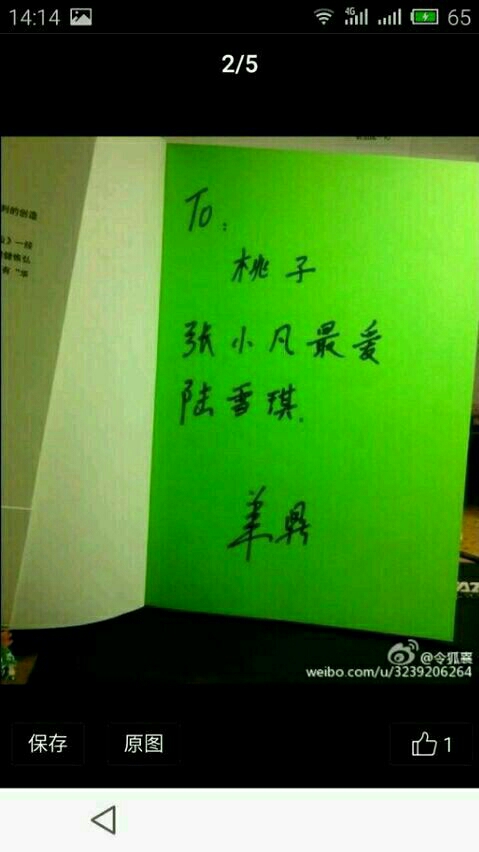 14:14
4G
65
2/5
列的创造
》一经
有“华
To:
桃子
张小凡最爱
陆雪琪.
萧鼎
@令狐熹
weibo.com/u/3239206264
保存
原图
1